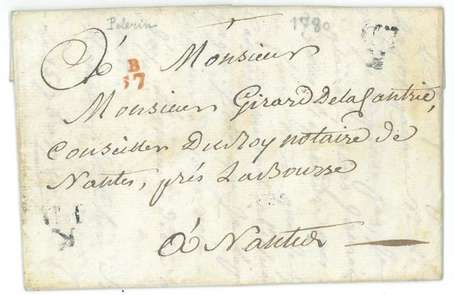 Pelerin 1780
À Monsieur
B
57
Monsieur Girard Delagantrie,
Conseiller Du Roy notaire de
Nantes, prés La Bourse
à Nantes